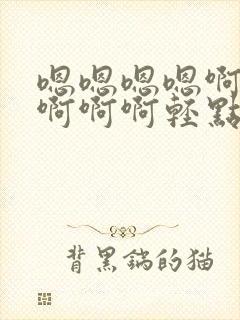 嗯嗯嗯嗯啊
啊啊啊輕點
背黑鍋的猫